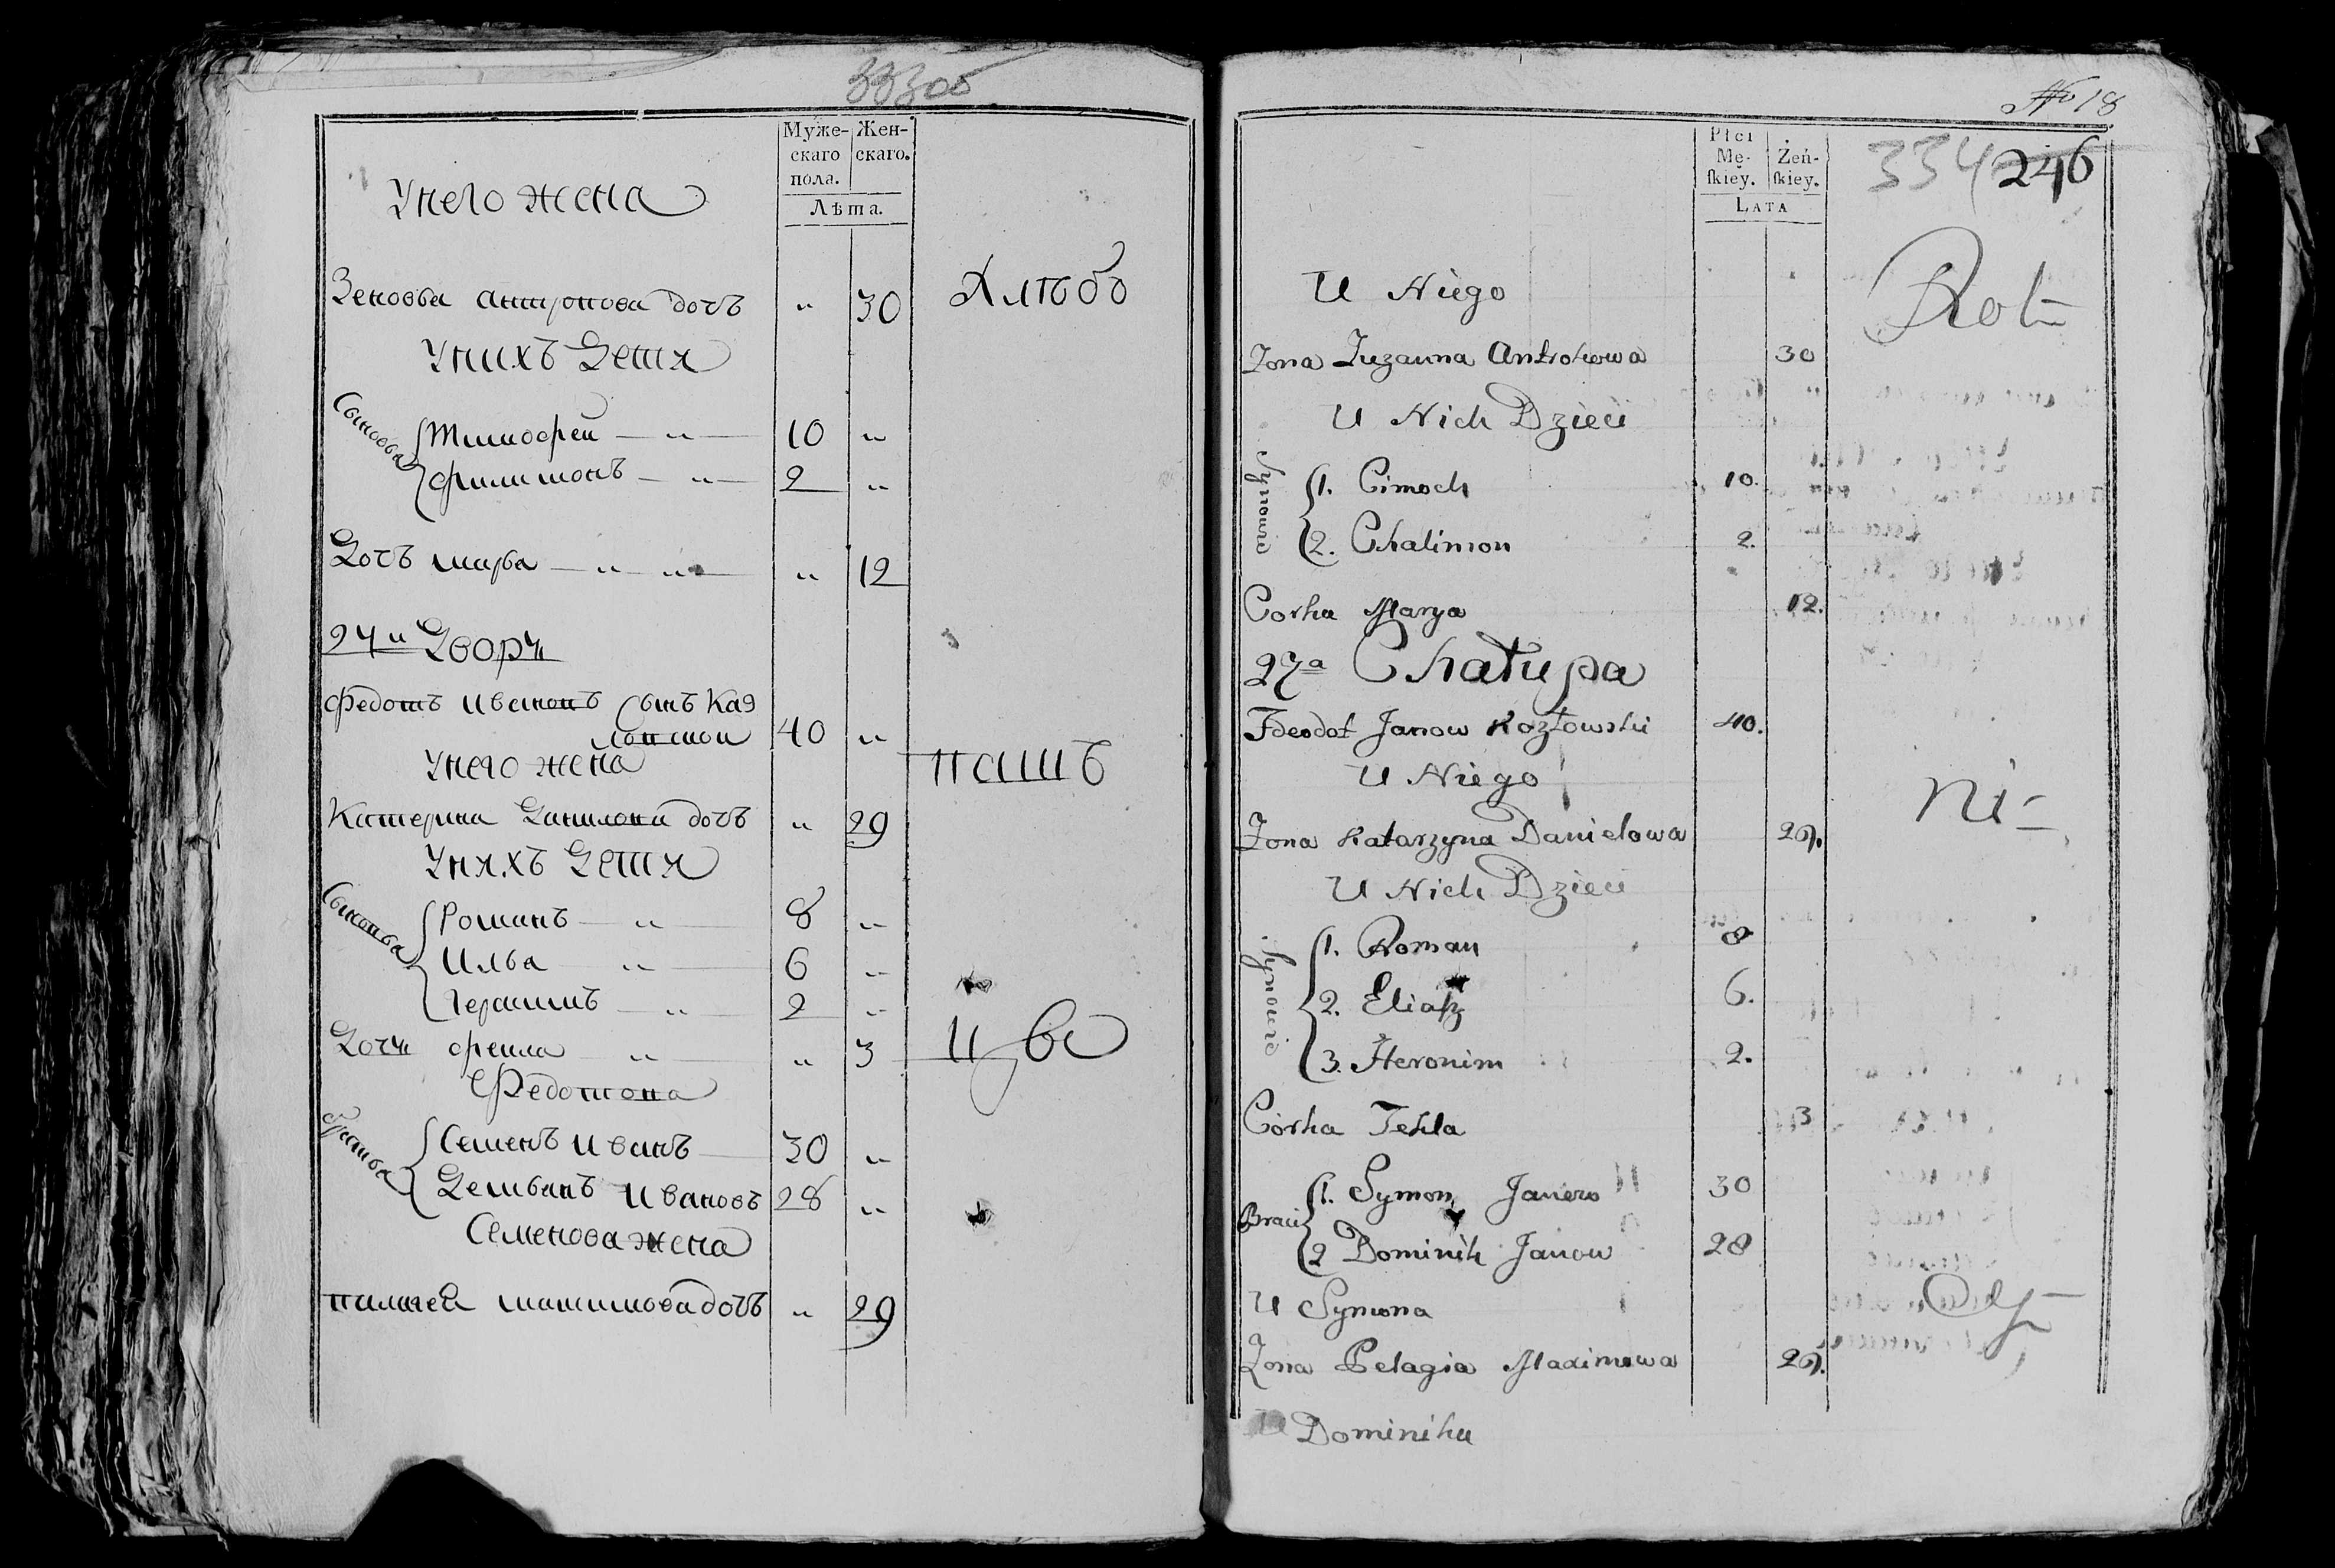 33300
Муже-
скаго
пола.
Жен-
скаго.
Лѣта.
Унего жена
Зеновья антропова дочъ " 30
Хлѣбо
Унихъ Дети
Сыновья
Тимофеи — " — 10 "
филимонъ — " — 2 "
Дочъ марья — " " — " 12
27и Дворъ
Федотъ Ивановъ Сынъ Каз
ловскои 40 "
Унего жена
пашъ
Катерина Данилова дочъ " 29
Унихъ Дети
Сыновья
Романъ — " — 8 "
Илья — " — 6 "
Герасимъ — " — 2 "
Дочь фекла — " — " 3
Федотова
братья
Семенъ Иванъ — 30 "
Демьянъ Ивановъ 28 "
Семенова жена
палагея максимова дочъ " 29
№ 18
334 246
Płci
Mę-
ſkiey.
Żeń-
ſkiey.
LATA
U Niego
Rol-
Zona Zuzanna Antrohowa 30
U Nich Dzieci
Synowie
1. Cimoch 10.
2. Chalimon 2.
Corka Marya 12.
27a Chałupa
Fdeodot Janow Kozłowski 40.
U Niego
ni-
Zona Katarzyna Danielowa 29.
U Nich Dzieci
Synowie
1. Roman 8
2. Eliaſz 6.
3. Heronim 2.
Córka Tekla 3
Braci
1. Symon Janow 30
2 Dominik Janow 28
U Symona
Zona Pelagia Maximowa 29.
U Dominika